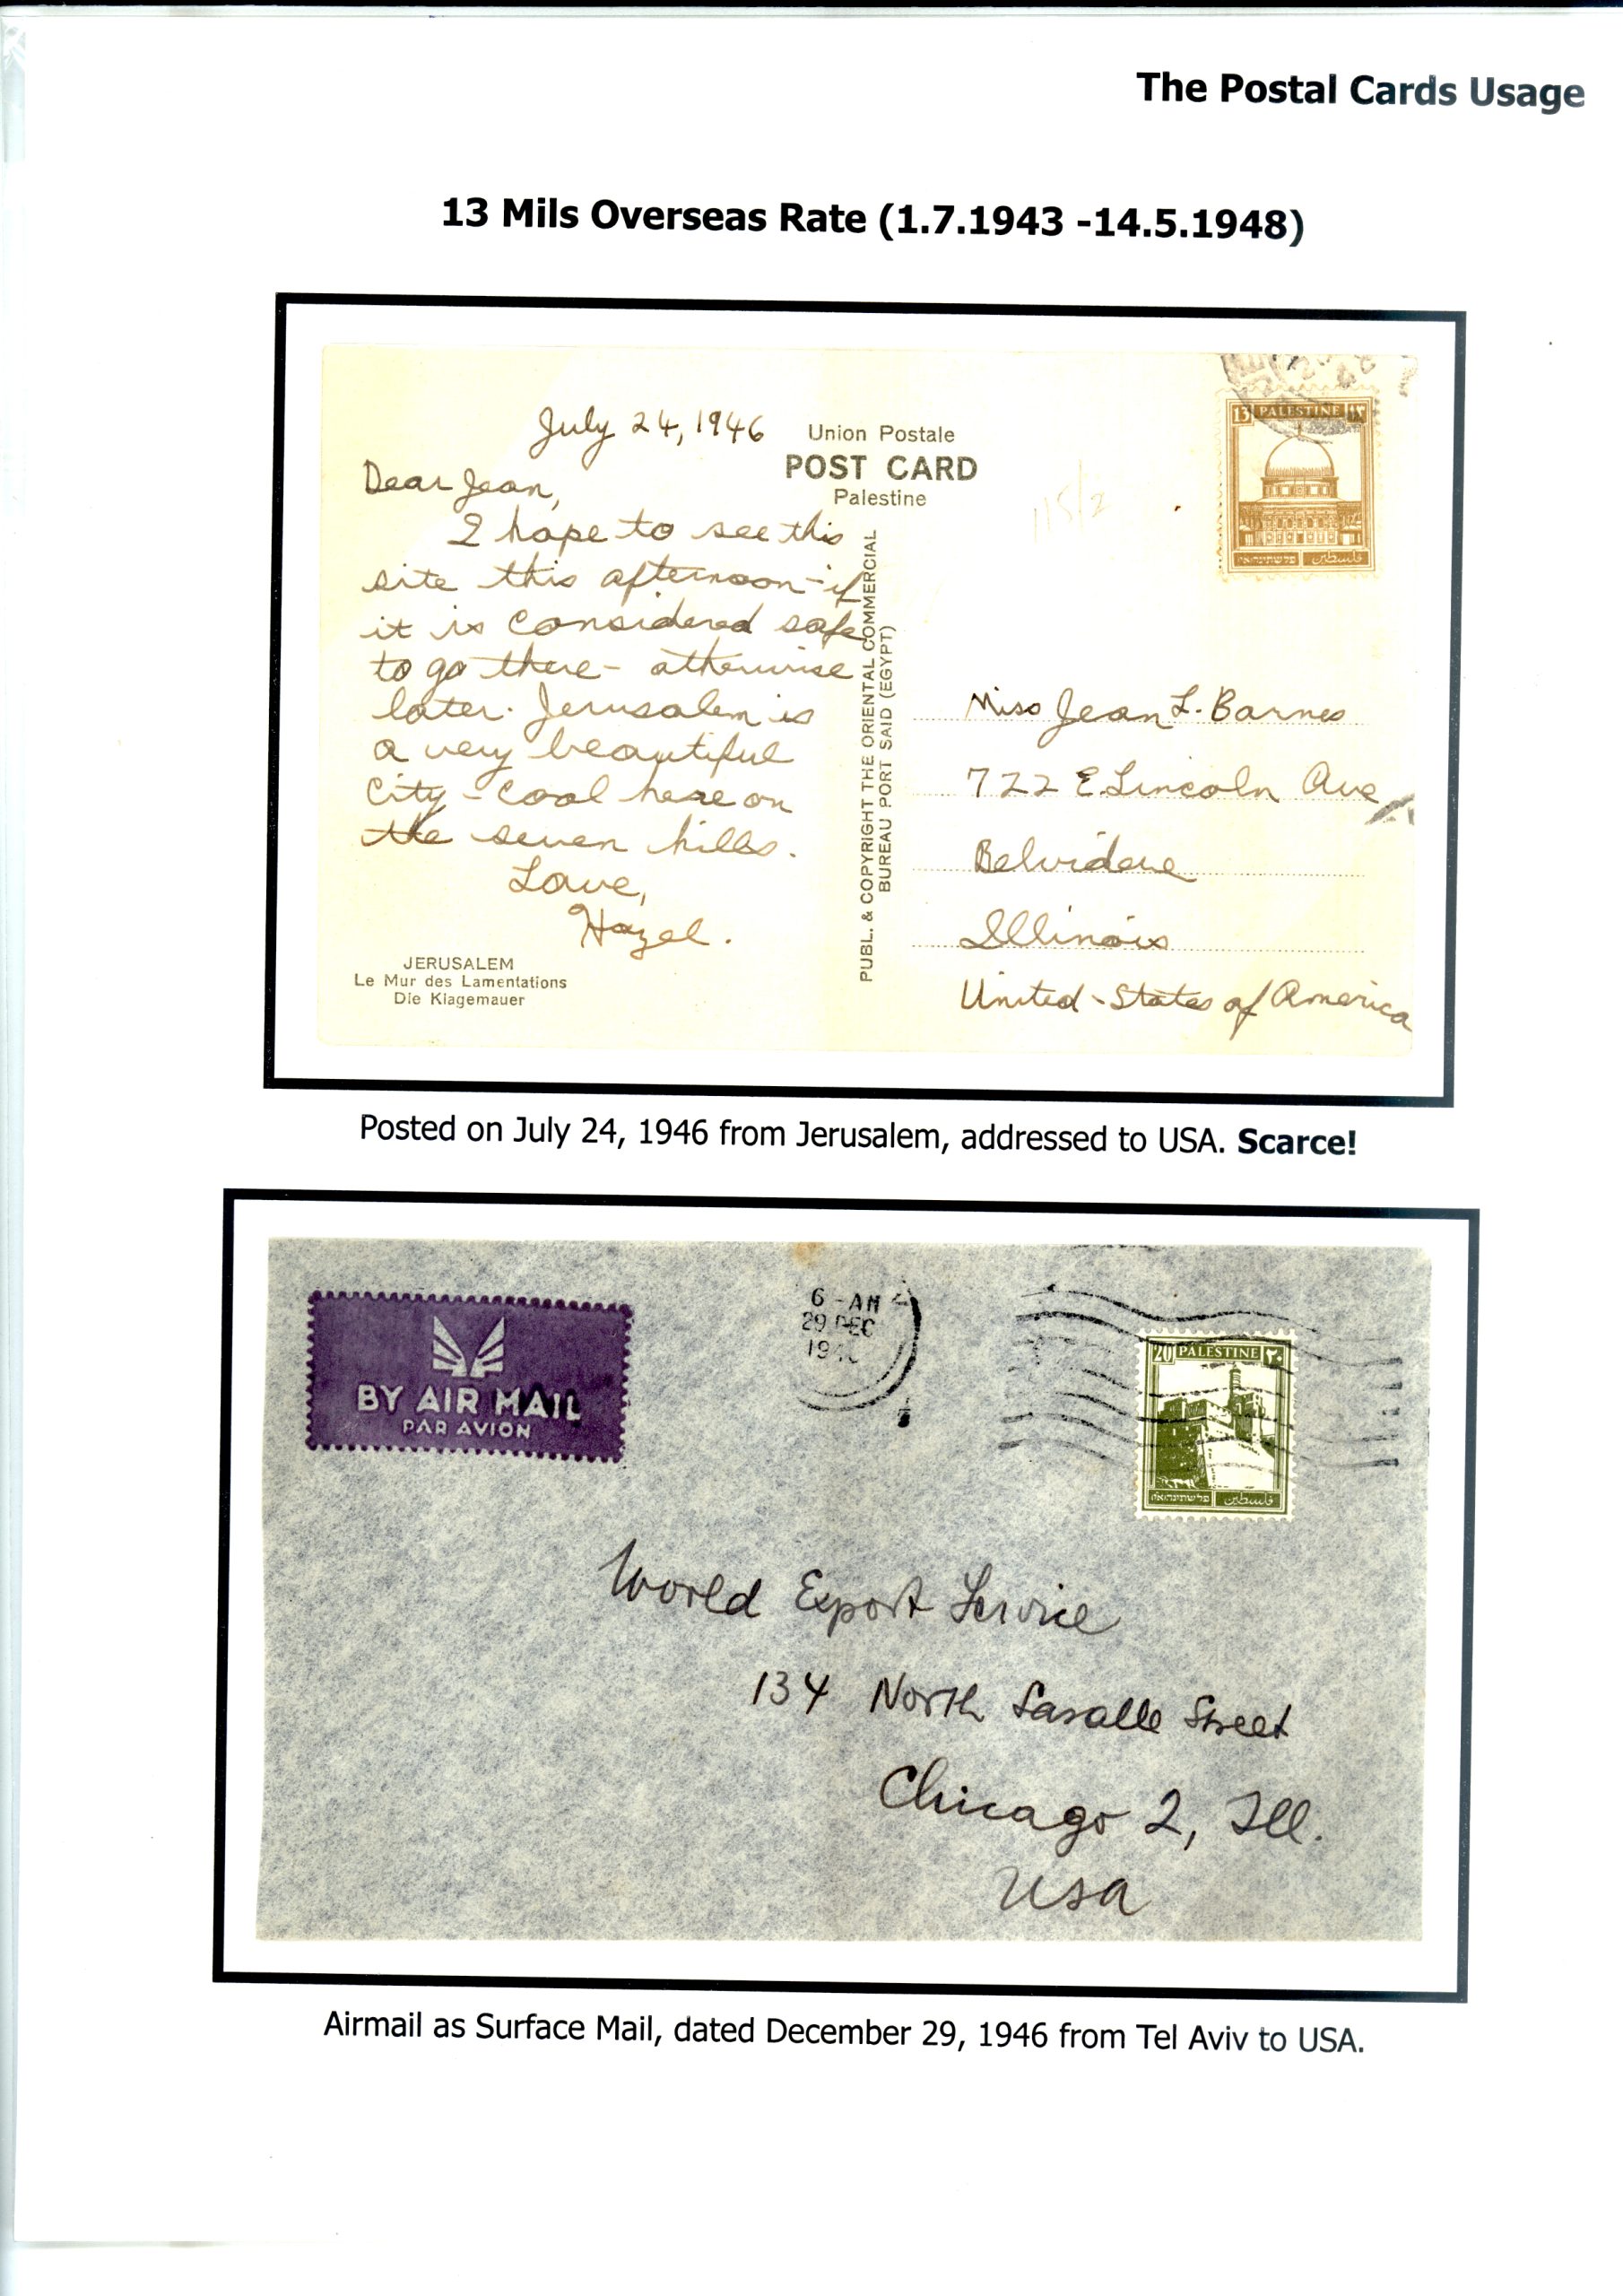 The Postal Cards Usage
13 Mils Overseas Rate (1.7.1943 -14.5.1948)
July 24, 1946
Dear Jean,
I hope to see this
site this afternoon - if
it is considered safe
to go there - otherwise
later. Jerusalem is
a very beautiful
City - cool here on
the seven hills.
Love,
Hazel.
JERUSALEM
Le Mur des Lamentations
Die Klagemauer
Union Postale
POST CARD
Palestine
PUBL. & COPYRIGHT THE ORIENTAL COMMERCIAL
BUREAU PORT SAID (EGYPT)
115/2
13 PALESTINE ١٣
פלשתינה א"י فلسطين
Miss Jean L. Barnes
722 E. Lincoln Ave
Belvidere
Illinois
United - States of America
Posted on July 24, 1946 from Jerusalem, addressed to USA. Scarce!
BY AIR MAIL
PAR AVION
6 - AM
29 DEC
20 PALESTINE ٢٠
פלשתינה א"י فلسطين
World Export Service
134 North Lasalle Street
Chicago 2, Ill.
USA
Airmail as Surface Mail, dated December 29, 1946 from Tel Aviv to USA.